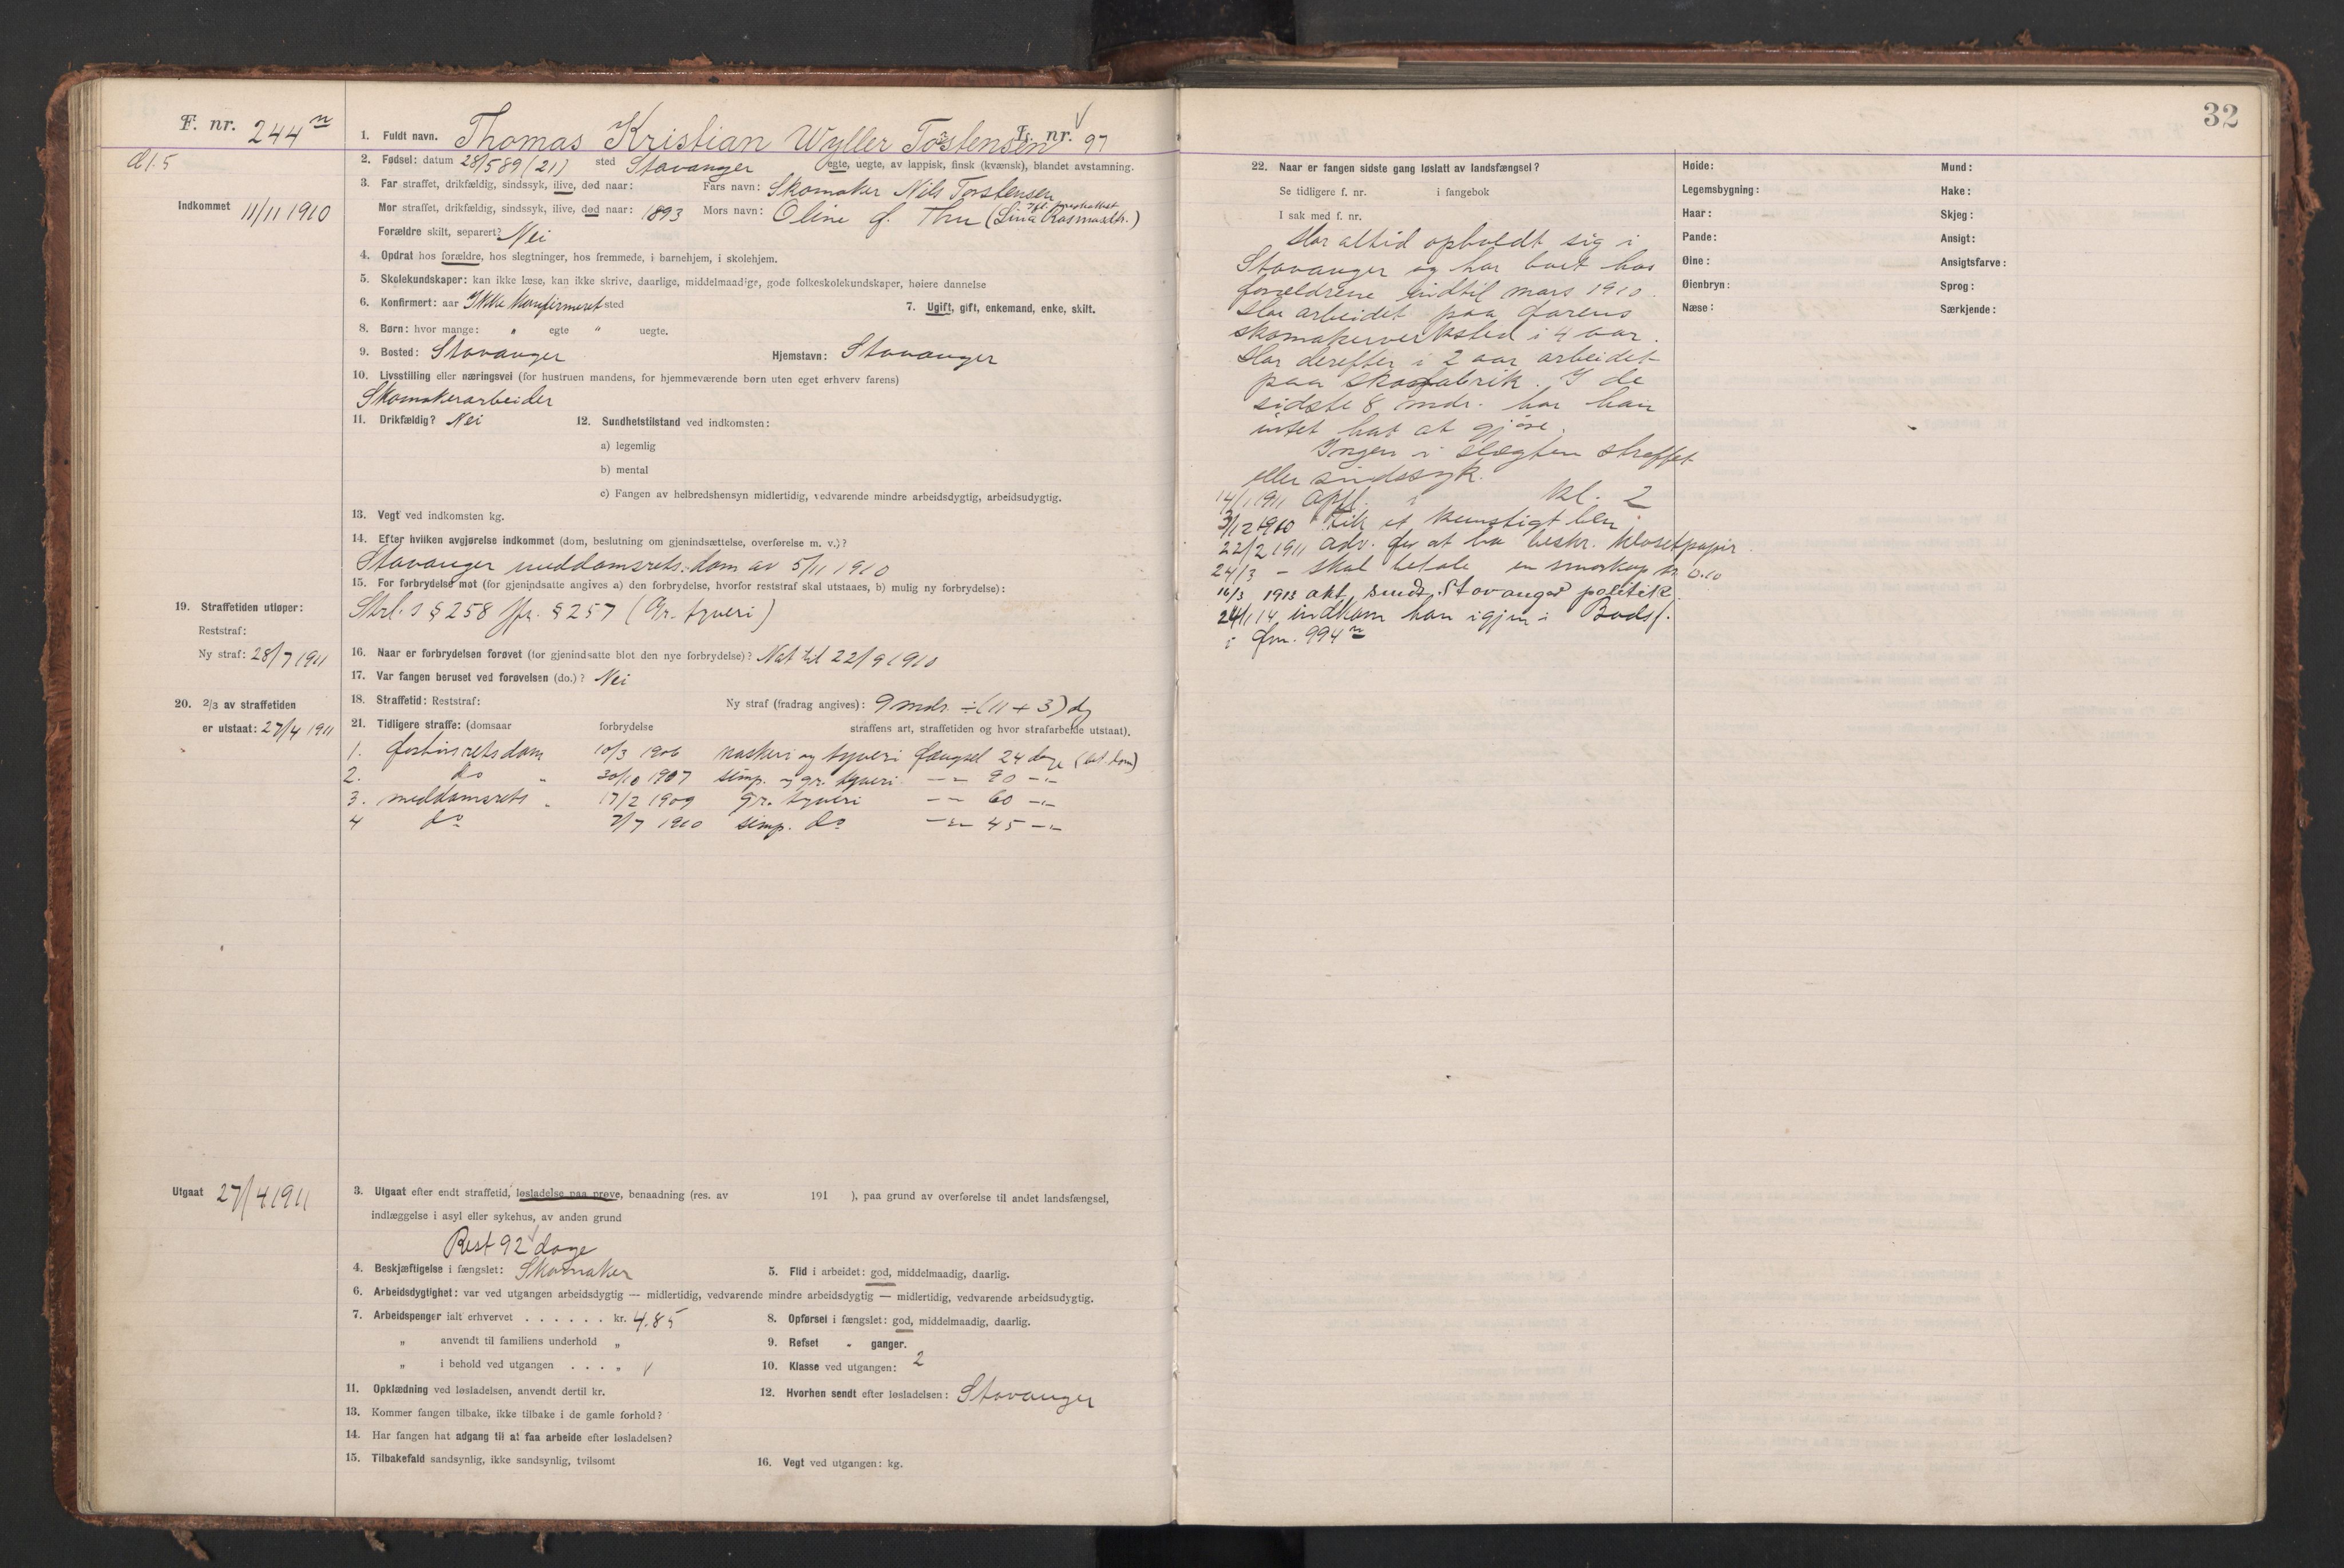 F. nr. 244 n
Al. 5
Indkommet 11/11 1910
1. Fuldt navn. Thomas Kristian Wyller Torstensen L. nr. 97
2. Fødsel: datum 28/5 89 (21) sted Stavanger egte, uegte, av lappisk, finsk (kvænsk), blandet avstamning.
3. Far straffet, drikfældig, sindssyk, ilive, død naar: Fars navn: Skomaker Nils Torstensen
Mor straffet, drikfældig, sindssyk, ilive, død naar: 1893 Mors navn: Oline f. Thu (Lina Rasmusdtr.)
Forældre skilt, separert? Nei
4. Opdrat hos forældre, hos slegtninger, hos fremmede, i barnehjem, i skolehjem.
5. Skolekundskaper: kan ikke læse, kan ikke skrive, daarlige, middelmaadige, gode folkeskolekundskaper, høiere dannelse
6. Konfirmert: aar Ikke konfirmeret sted 7. Ugift, gift, enkemand, enke, skilt.
8. Børn: hvor mange: " egte " uegte.
9. Bosted: Stavanger Hjemstavn: Stavanger
10. Livsstilling eller næringsvei (for hustruen mandens, for hjemmeværende børn uten eget erhverv farens)
Skomakerarbeider
11. Drikfældig? Nei 12. Sundhetstilstand ved indkomsten:
a) legemlig
b) mental
c) Fangen av helbredshensyn midlertidig, vedvarende mindre arbeidsdygtig, arbeidsudygtig.
13. Vegt ved indkomsten kg.
14. Efter hvilken avgjørelse indkommet (dom, beslutning om gjenindsættelse, overførelse m. v.)?
Stavanger meddomsrets dom av 5/11 1910
15. For forbrydelse mot (for gjenindsatte angives a) den forbrydelse, hvorfor reststraf skal utstaaes, b) mulig ny forbrydelse):
Strl.s § 258 jfr. § 257 (Gr. tyveri)
16. Naar er forbrydelsen forøvet (for gjenindsatte blot den nye forbrydelse)? Nat til 22/9 1910
17. Var fangen beruset ved forøvelsen (do.)? Nei
18. Straffetid: Reststraf: Ny straf (fradrag angives): 9 mdr. ÷ (11 + 3) dg
19. Straffetiden utløper:
Reststraf:
Ny straf: 28/7 1911
20. 2/3 av straffetiden
er utstaat: 27/4 1911
21. Tidligere straffe: (domsaar forbrydelse straffens art, straffetiden og hvor strafarbeide utstaat).
1. forhørsrets dom 10/3 1906 naskeri og tyveri fængsel 24 dage (bet. dom)
2. do " 30/10 1907 simp. og gr. tyveri –"– 90 –"–
3. meddomsrets " 17/2 1909 gr. tyveri –"– 60 –"–
4 do 7/7 1910 simp. do –"– 45 –"–
Utgaat 27/4 1911
3. Utgaat efter endt straffetid, løsladelse paa prøve, benaadning (res. av 191 ), paa grund av overførelse til andet landsfængsel,
indlæggelse i asyl eller sykehus, av anden grund
Rest 92 dage
4. Beskjæftigelse i fængslet: Skomaker 5. Flid i arbeidet: god, middelmaadig, daarlig.
6. Arbeidsdygtighet: var ved utgangen arbeidsdygtig — midlertidig, vedvarende mindre arbeidsdygtig — midlertidig, vedvarende arbeidsudygtig.
7. Arbeidspenger ialt erhvervet . . . . . . kr. 4.85 8. Opførsel i fængslet: god, middelmaadig, daarlig.
" anvendt til familiens underhold " 9. Refset " ganger.
" i behold ved utgangen . . . " 10. Klasse ved utgangen: 2
11. Opklædning ved løsladelsen, anvendt dertil kr. 12. Hvorhen sendt efter løsladelsen: Stavanger
13. Kommer fangen tilbake, ikke tilbake i de gamle forhold?
14. Har fangen hat adgang til at faa arbeide efter løsladelsen?
15. Tilbakefald sandsynlig, ikke sandsynlig, tvilsomt 16. Vegt ved utgangen: kg.
32
22. Naar er fangen sidste gang løslatt av landsfængsel?
Se tidligere f. nr. i fangebok
I sak med f. nr.
Har altid opholdt sig i
Stavanger og har boet hos
forældrene indtil mars 1910.
Har arbeidet paa farens
skomakerverksted i 4 aar.
Har derefter i 2 aar arbeidet
paa skofabrik. I de
sidste 8 mdr. har han
intet hat at gjøre.
Ingen i slægten straffet
eller sindssyk.
14/1 1911 opfl. i kl. 2
3/12 1910 fik et kunstigt ben.
22/2 1911 adv. for at ha beskr. klosetpapir.
24/3 – skal betale en kr. 0.10
16/3 1913 akt. sendt Stavanger politik.
24/1 14 indkom han igjen i Bodsf.
i fnr. 994 n
Høide: Mund:
Legemsbygning: Hake:
Haar: Skjeg:
Pande: Ansigt:
Øine: Ansigtsfarve:
Øienbryn: Sprog:
Næse: Særkjende: